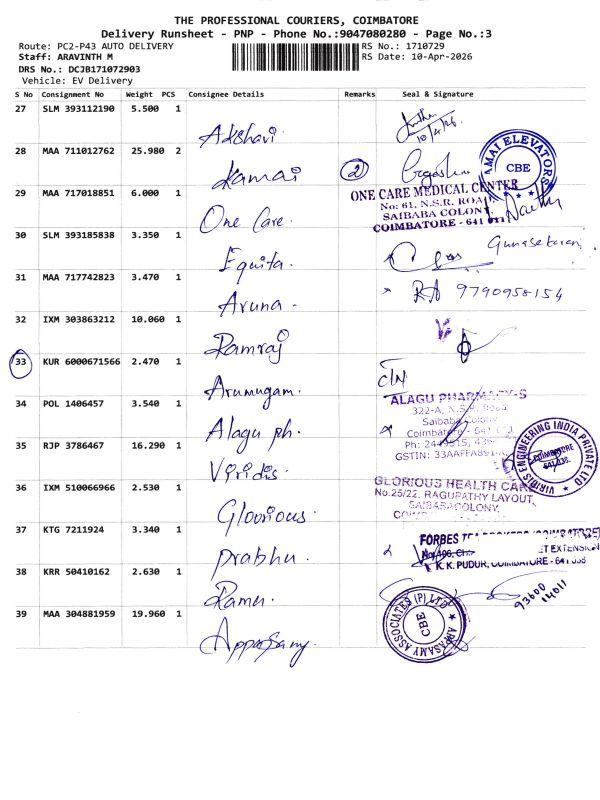 THE PROFESSIONAL COURIERS, COIMBATORE
Delivery Runsheet - PNP - Phone No.:9047080280 - Page No.:3
Route: PC2-P43 AUTO DELIVERY
RS No.: 1710729
Staff: ARAVINTH M
RS Date: 10-Apr-2026
DRS No.: DCJB171072903
Vehicle: EV Delivery
S No Consignment No Weight PCS Consignee Details Remarks Seal & Signature
27 SLM 393112190 5.500 1
Akshavi
10/4/26
28 MAA 711012762 25.980 2
Kamai
2
ELEVATORS
CBE
29 MAA 717018851 6.000 1
One Care
ONE CARE MEDICAL CENTER
No: 61, N.S.R. ROAD
SAIBABA COLONY
COIMBATORE - 641 011
30 SLM 393185838 3.350 1
Equita
Gunasekaran
31 MAA 717742823 3.470 1
Aruna
9790958154
32 IXM 303863212 10.060 1
Ramraj
33 KUR 6000671566 2.470 1
Arumugam
34 POL 1406457 3.540 1
Alagu ph
ALAGU PHARMACY-S
322-A, N.S.R. Road
Saibaba Colony
Coimbatore - 641
Ph:
GSTIN:
35 RJP 3786467 16.290 1
Viridis
VIRIDIS ENGINEERING INDIA PRIVATE LTD
COIMBATORE
641 038
36 IXM 510066966 2.530 1
Glovrious
GLORIOUS HEALTH CARE
No.25/22, RAGUPATHY LAYOUT,
SAIBABACOLONY,
37 KTG 7211924 3.340 1
Prabhu
FORBES
ET EXTENSION
K.K. PUDUR, COIMBATORE - 641 038
38 KRR 50410162 2.630 1
Ramu
93600
14011
39 MAA 304881959 19.960 1
Appasamy
APPASAMY ASSOCIATES (P) LTD
CBE